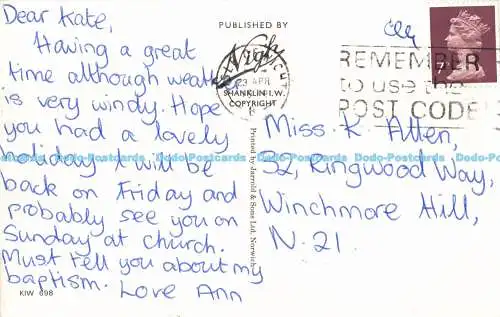 Dear Kate,
Having a great
time although weather
is very windy. Hope
you had a lovely
holiday I will be
back on Friday and
probably see you on
Sunday at church.
Must tell you about my
baptism. Love Ann
KIW 698
PUBLISHED BY
Nigh
SHANKLIN I.W.
COPYRIGHT
23 APR
Printed by Jarrold & Sons Ltd. Norwich
REMEMBER
to use the
POST CODE
Miss. K. Allen,
32, Ringwood Way,
Winchmore Hill,
N.21.
Dodo-Postcards Dodo-Postcards Dodo-Postcards Dodo-Postcards